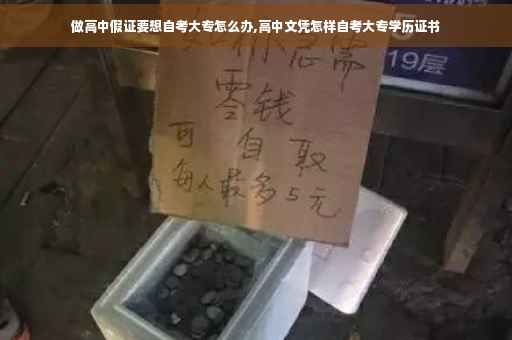 做高中假证要想自考大专怎么办,高中文凭怎样自考大专学历证书
如你急需
零钱
可 自 取
每人最多5元
19层